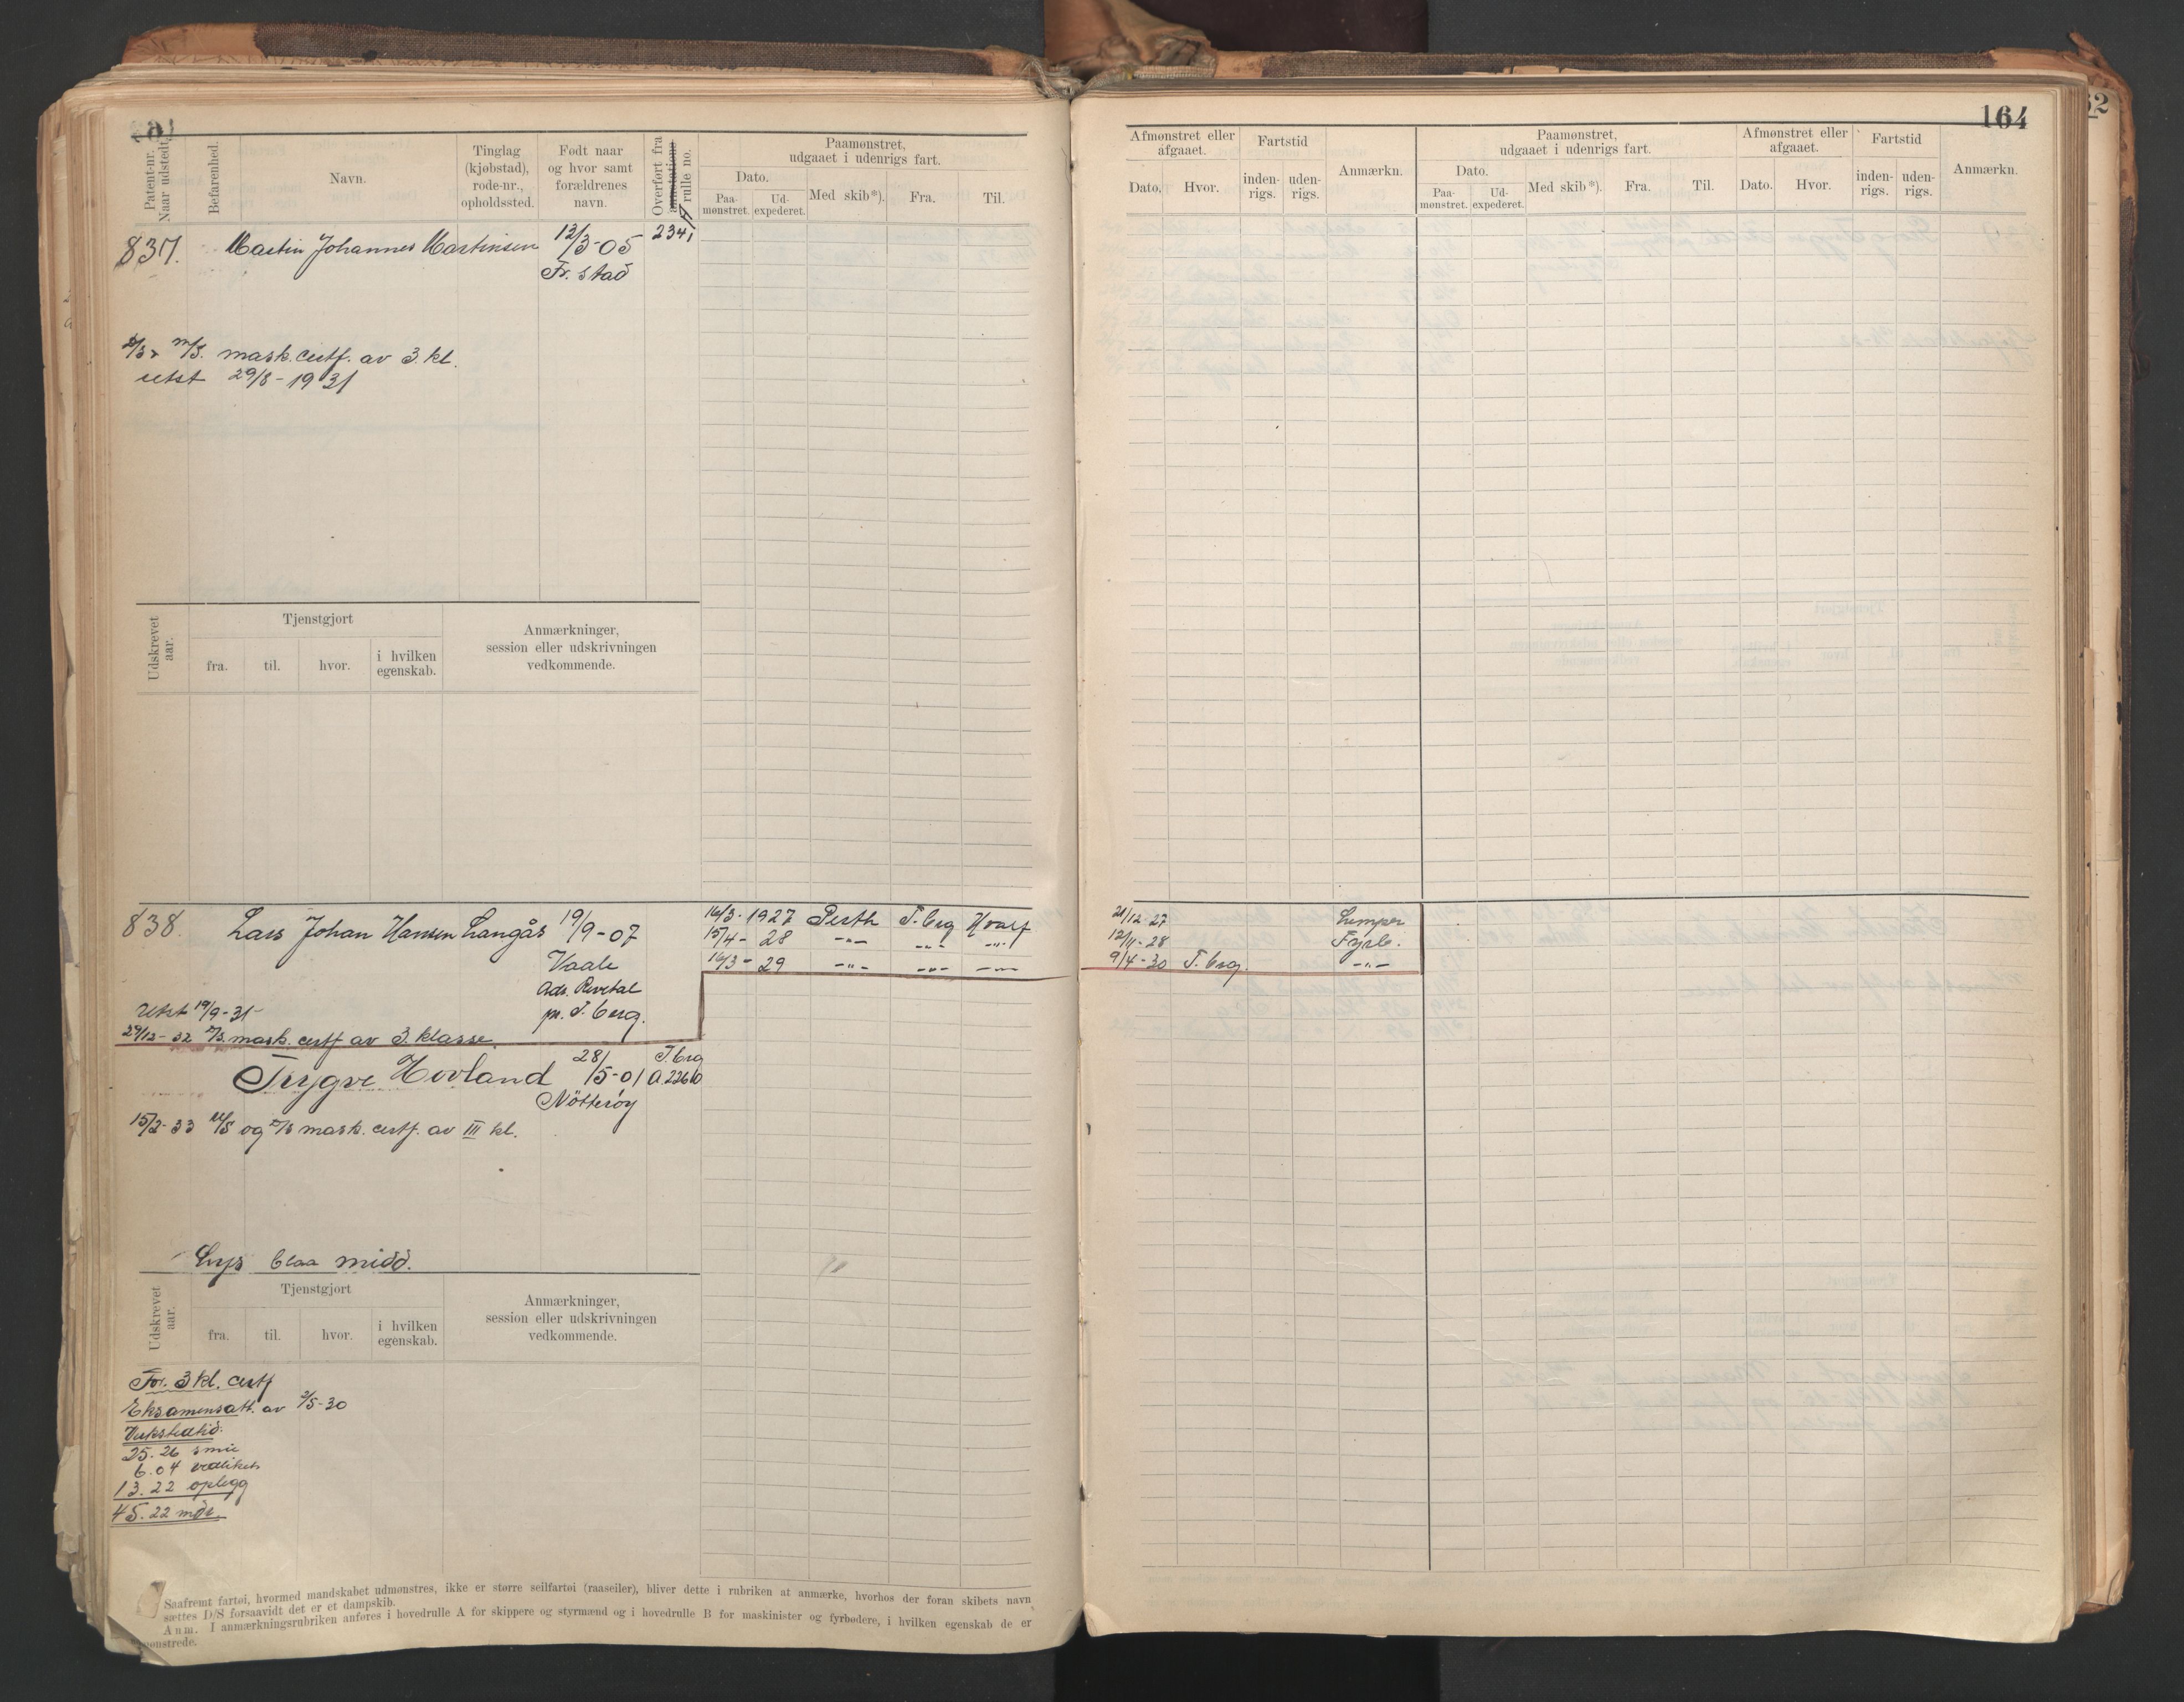 164
62
Patent-nr. Naar udstedt.
Befarenhed.
Navn.
Tinglag (kjøbstad), rode-nr., opholdssted.
Født naar og hvor samt forældrenes navn.
Overført fra annotations rulle no.
Paamønstret, udgaaet i udenrigs fart.
Dato.
Paa-mønstret.
Ud-expederet.
Med skib*).
Fra.
Til.
Afmønstret eller afgaaet.
Dato.
Hvor.
Fartstid
inden-rigs.
uden-rigs.
Anmærkn.
Paamønstret, udgaaet i udenrigs fart.
Dato.
Paa-mønstret.
Ud-expederet.
Med skib*).
Fra.
Til.
Afmønstret eller afgaaet.
Dato.
Hvor.
Fartstid
inden-rigs.
uden-rigs.
Anmærkn.
837. Martin Johannes Martinsen 12/3-05 2341
Fr. stad
m/s. mask. certf. av 3. kl.
utst 29/8-1931
Udskrevet aar.
Tjenstgjort
fra.
til.
hvor.
i hvilken egenskab.
Anmærkninger, session eller udskrivningen vedkommende.
838. Lars Johan Hansen Langås 19/9-07
Vaale
Adr. Revetal
pr. T.berg.
16/3-1927 Perth T.brg Hvalf 21/12-27 Lemper
15/4-28 -"- -"- -"- 12/11-28 Fyrb.
16/3-29 -"- -"- -"- 9/4-30 T.brg. -"-
Utst 19/9-31-
29/12-32 m/s. mask. certf av 3. klasse.
Trygve Hovland 28/5-01 T.brg A.2260
Nötteröy
15/2-33 m/s og d/s mask. certf. av III kl.
Lys blaa midd.
Udskrevet aar.
Tjenstgjort
fra.
til.
hvor.
i hvilken egenskab.
Anmærkninger, session eller udskrivningen vedkommende.
For. 3 kl. certf
Eksamensatt. av 3/5-30
Verkstedtid:
25.26 smie
6.04
13.22 oplegg
45.22 mdr.
Saafremt fartøi, hvormed mandskabet udmønstres, ikke er større seilfartøi (raaseiler), bliver dette i rubriken at anmærke, hvorhos der foran skibets navn
sættes D/S forsaavidt det er et dampskib.
Anm. I anmærkningsrubriken anføres i hovedrulle A for skippere og styrmænd og i hovedrulle B for maskinister og fyrbødere, i hvilken egenskab de er
mønstrede.